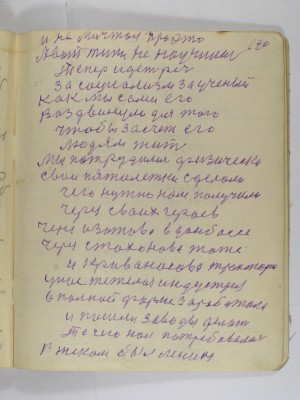 и не мичтой просто
190
Авот типи не научим
Тепер идет реч
за социализм заученый
как мы сами его
воздвинули для того
чтобы засчет его
людям жит
мы потрудилис физически
свои пятилетки сделали
чего нужно нам получили
через своих героев
через изотова в донбасе
через стахонова тоже
и
уже тежолая индустрия
в полной форме заработала
и пошли заводы делат
то чего нам потребовалос
в таком был Ленин